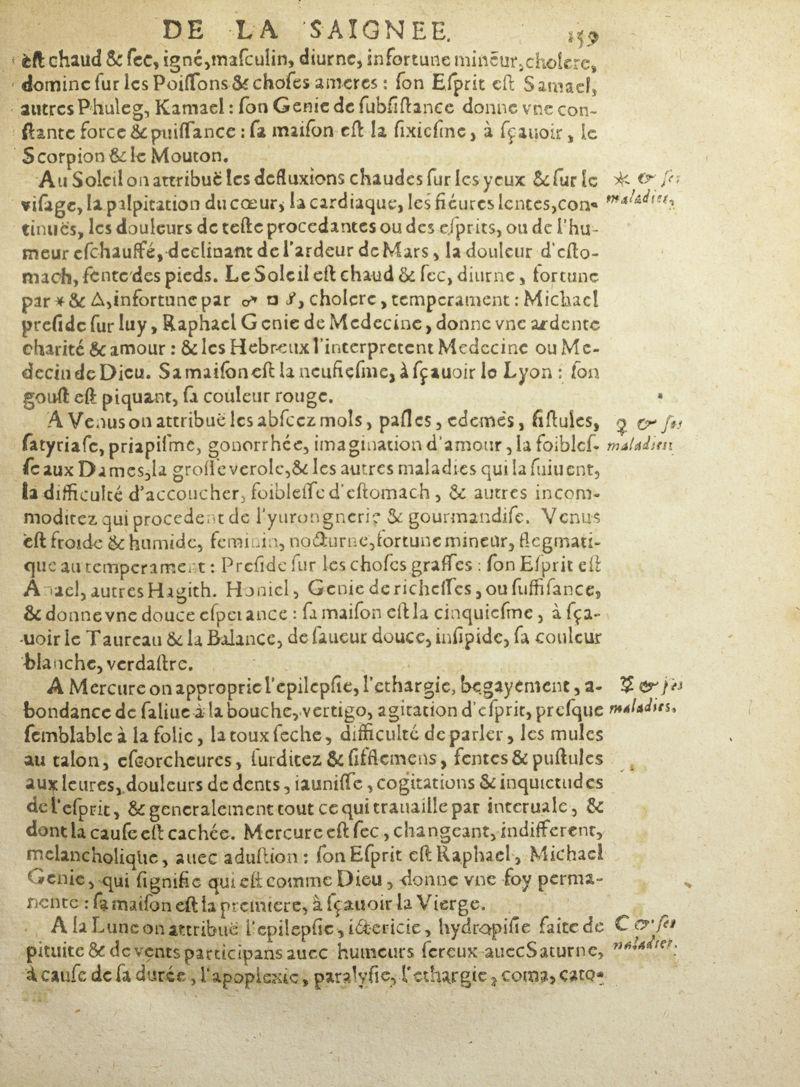 DE LA SAIGNEE. 159
eſt chaud & ſec, igné, maſculin, diurne, infortune mineur, cholere,
domine ſur les Poiſſons & choſes ameres : ſon Eſprit eſt Samael,
autres Phuleg, Kamael : ſon Genie de ſubſiſtance donne vne con-
ſtante force & puiſſance : ſa maiſon eſt la ſixieſme, à ſçauoir, le
Scorpion & le Mouton.
Au Soleil on attribuë les defluxions chaudes ſur les yeux & ſur le
viſage, la palpitation du cœur, la cardiaque, les fiéures lentes, con-
tinuës, les douleurs de teſte procedantes ou des eſprits, ou de l'hu-
meur eſchauffé, declinant de l'ardeur de Mars, la douleur d'eſto-
mach, fente des pieds. Le Soleil eſt chaud & ſec, diurne, fortune
par ⚹ & △, infortune par ☍ □ ☌, cholere, temperament : Michael
preſide ſur luy, Raphael Genie de Medecine, donne vne ardente
charité & amour : & les Hebreux l'interpretent Medecine ou Me-
decin de Dieu. Sa maiſon eſt la neufieſme, à ſçauoir le Lyon : ſon
gouſt eſt piquant, ſa couleur rouge.
A Venus on attribuë les abſcez mols, paſles, edemes, fiſtules,
ſatyriaſe, priapiſme, gonorrhée, imagination d'amour, la foibleſ-
ſe aux Dames, la groſſe verole, & les autres maladies qui la ſuiuent,
la difficulté d'accoucher, foibleſſe d'eſtomach, & autres incom-
moditez qui procedent de l'yurongnerie & gourmandiſe. Venus
eſt froide & humide, feminin, nocturne, fortune mineur, flegmati-
que au temperament : Preſide ſur les choſes graſſes : ſon Eſprit eſt
Anael, autres Hagith. Haniel, Genie de richeſſes, ou ſuffiſance,
& donne vne douce eſperance : ſa maiſon eſt la cinquieſme, à ſça-
uoir le Taureau & la Balance, de ſaueur douce, inſipide, ſa couleur
blanche, verdaſtre.
A Mercure on approprie l'epilepſie, l'ethargie, begayement, a-
bondance de ſaliue à la bouche, vertigo, agitation d'eſprit, preſque
ſemblable à la folie, la toux ſeche, difficulté de parler, les mules
au talon, eſcorcheures, ſurditez & ſifflemens, fentes & puſtules
aux leures, douleurs de dents, iauniſſe, cogitations & inquietudes
de l'eſprit, & generalement tout ce qui trauaille par interuale, &
dont la cauſe eſt cachée. Mercure eſt ſec, changeant, indifferent,
melancholique, auec aduſtion : ſon Eſprit eſt Raphael, Michael
Genie, qui ſignifie qui eſt comme Dieu, donne vne foy perma-
nente : ſa maiſon eſt la premiere, à ſçauoir la Vierge.
A la Lune on attribuë l'epilepſie, ictericie, hydropiſie faite de
pituite & de vents participans auec humeurs ſereux auec Saturne,
à cauſe de ſa durée, l'apoplexie, paralyſie, l'ethargie, coma, cato-
⚹ & ſes
maladies,
♀ & ſes
maladies
☿ & ſes
maladies,
☾ & ſes
maladies.